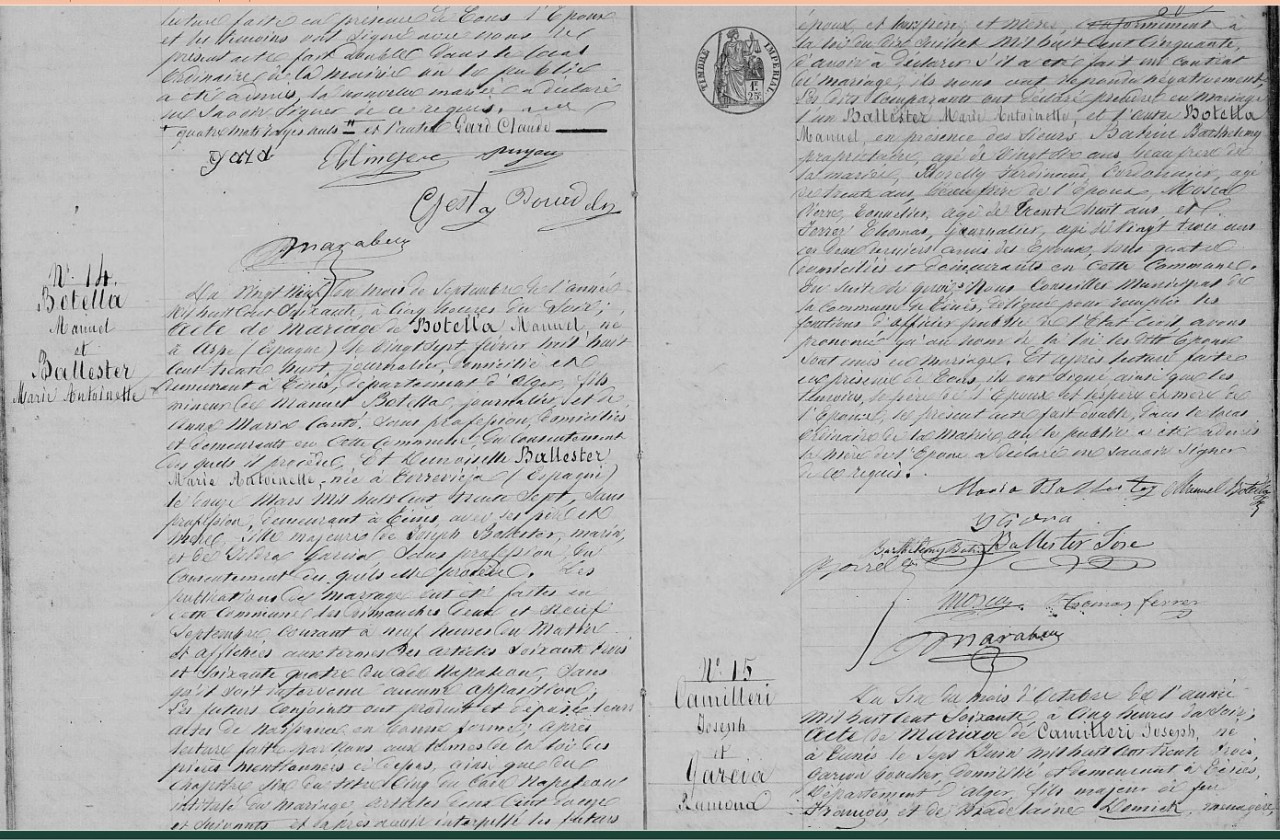 lecture faite en présence de tous l'Epoux
et les témoins ont signé avec nous le
présent acte fait double dans le local
Ordinaire de la mairie ou le public
a été admis, la nouvelle mariée a déclaré
ne savoir signer de ce requis.
quatre mots rayés nuls et l'autre Gard Claude
gard
Gest
Bourdel
Marabeu
N° 14.
Botella
Manuel
et
Ballester
Marie Antoinette
Du Vingt neuf du mois de Septembre de l'année
Mil huit Cent Soixante, à Cinq heures du Soir;
Acte de mariage de Botella Manuel, né
à Aspe (Espagne) le vingt sept février mil huit
Cent trente huit, journalier, domicilié et
demeurant à Ténès, département d'Alger, fils
mineur de Manuel Botella, journalier, et de
Anne Maria Canto, sans profession, domiciliés
et demeurants en cette Commune, du Consentement
des quels il procède, Et Demoiselle Ballester
Marie Antoinette, née à Torrevieja (Espagne)
le Mars Mil huit Cent trente Sept, Sans
profession, demeurant à Ténès, avec ses père et
mère, fille majeure de Joseph Ballester, marin,
et de Garcia Sans profession, du
Consentement des quels elle procède. Les
publications de mariage ont été faites en
cette Commune les dimanches deux et Neuf
Septembre Courant à neuf heures du Matin
et affichées aux termes des articles Soixante trois
et Soixante quatre du Code Napoléon, Sans
qu'il soit intervenu aucune opposition;
Les futurs Conjoints ont produit et déposé leurs
actes de Naissance en bonne forme; après
lecture faite par Nous aux termes de la loi des
pièces mentionnées ci dessus, ainsi que du
Chapitre Six du titre Cinq du Code Napoléon
intitulé du mariage articles deux Cent douze
et Suivants et après avoir interpellé les futurs
TIMBRE IMPERIAL
1f.
25c.
époux et et mère, Conformément à
la loi du dix Juillet Mil huit Cent Cinquante,
d'avoir à déclarer s'il a été fait un Contrat
de mariage, ils nous ont répondu négativement,
Les dits Comparants ont déclaré prendre en mariage
l'un Ballester Marie Antoinette, et l'autre Botella
Manuel, en présence des Sieurs Barthelemy
propriétaire, agé de Vingt dix ans, beau frère de
la mariée, Ferdinand, Cordonnier, agé
de trente ans, beau frère de l'Epoux,
Pierre, Tonnelier, agé de trente huit ans, et
Ferrer Thomas, journalier, agé de Vingt trois ans
ces deux derniers amis des Epoux, tous quatre
domiciliés et demeurants en cette Commune.
En Suite de quoi: Nous Conseiller Municipal de
la Commune de Ténès, délégué pour remplir les
fonctions d'officier public de l'Etat Civil, avons
prononcé qu'au nom de la loi les dits Epoux
sont unis en mariage. Et après lecture faite
en présence de Tous, ils ont signé ainsi que les
témoins, le père de l'Epoux et le père et mère de
l'Epouse, le présent acte fait double, dans le local
Ordinaire de la Mairie ou le public a été admis
la mère de l'Epoux a déclaré ne savoir signer
de ce requis.
Maria Ballester Manuel Botella
Ballester Jose
Thomas ferrer
Marabeu
N° 15
Camilleri
Joseph
et
Garcia
Ramona
Du Six du mois d'Octobre de l'année
Mil huit Cent Soixante, à Cinq heures du Soir;
Acte de Mariage de Camilleri Joseph, né
à Tunis le Sept Mil huit Cent trente trois,
Garçon boucher, domicilié et demeurant à Ténès,
Département d'Alger, fils majeur de feu
François, et de Madelaine ménagère,